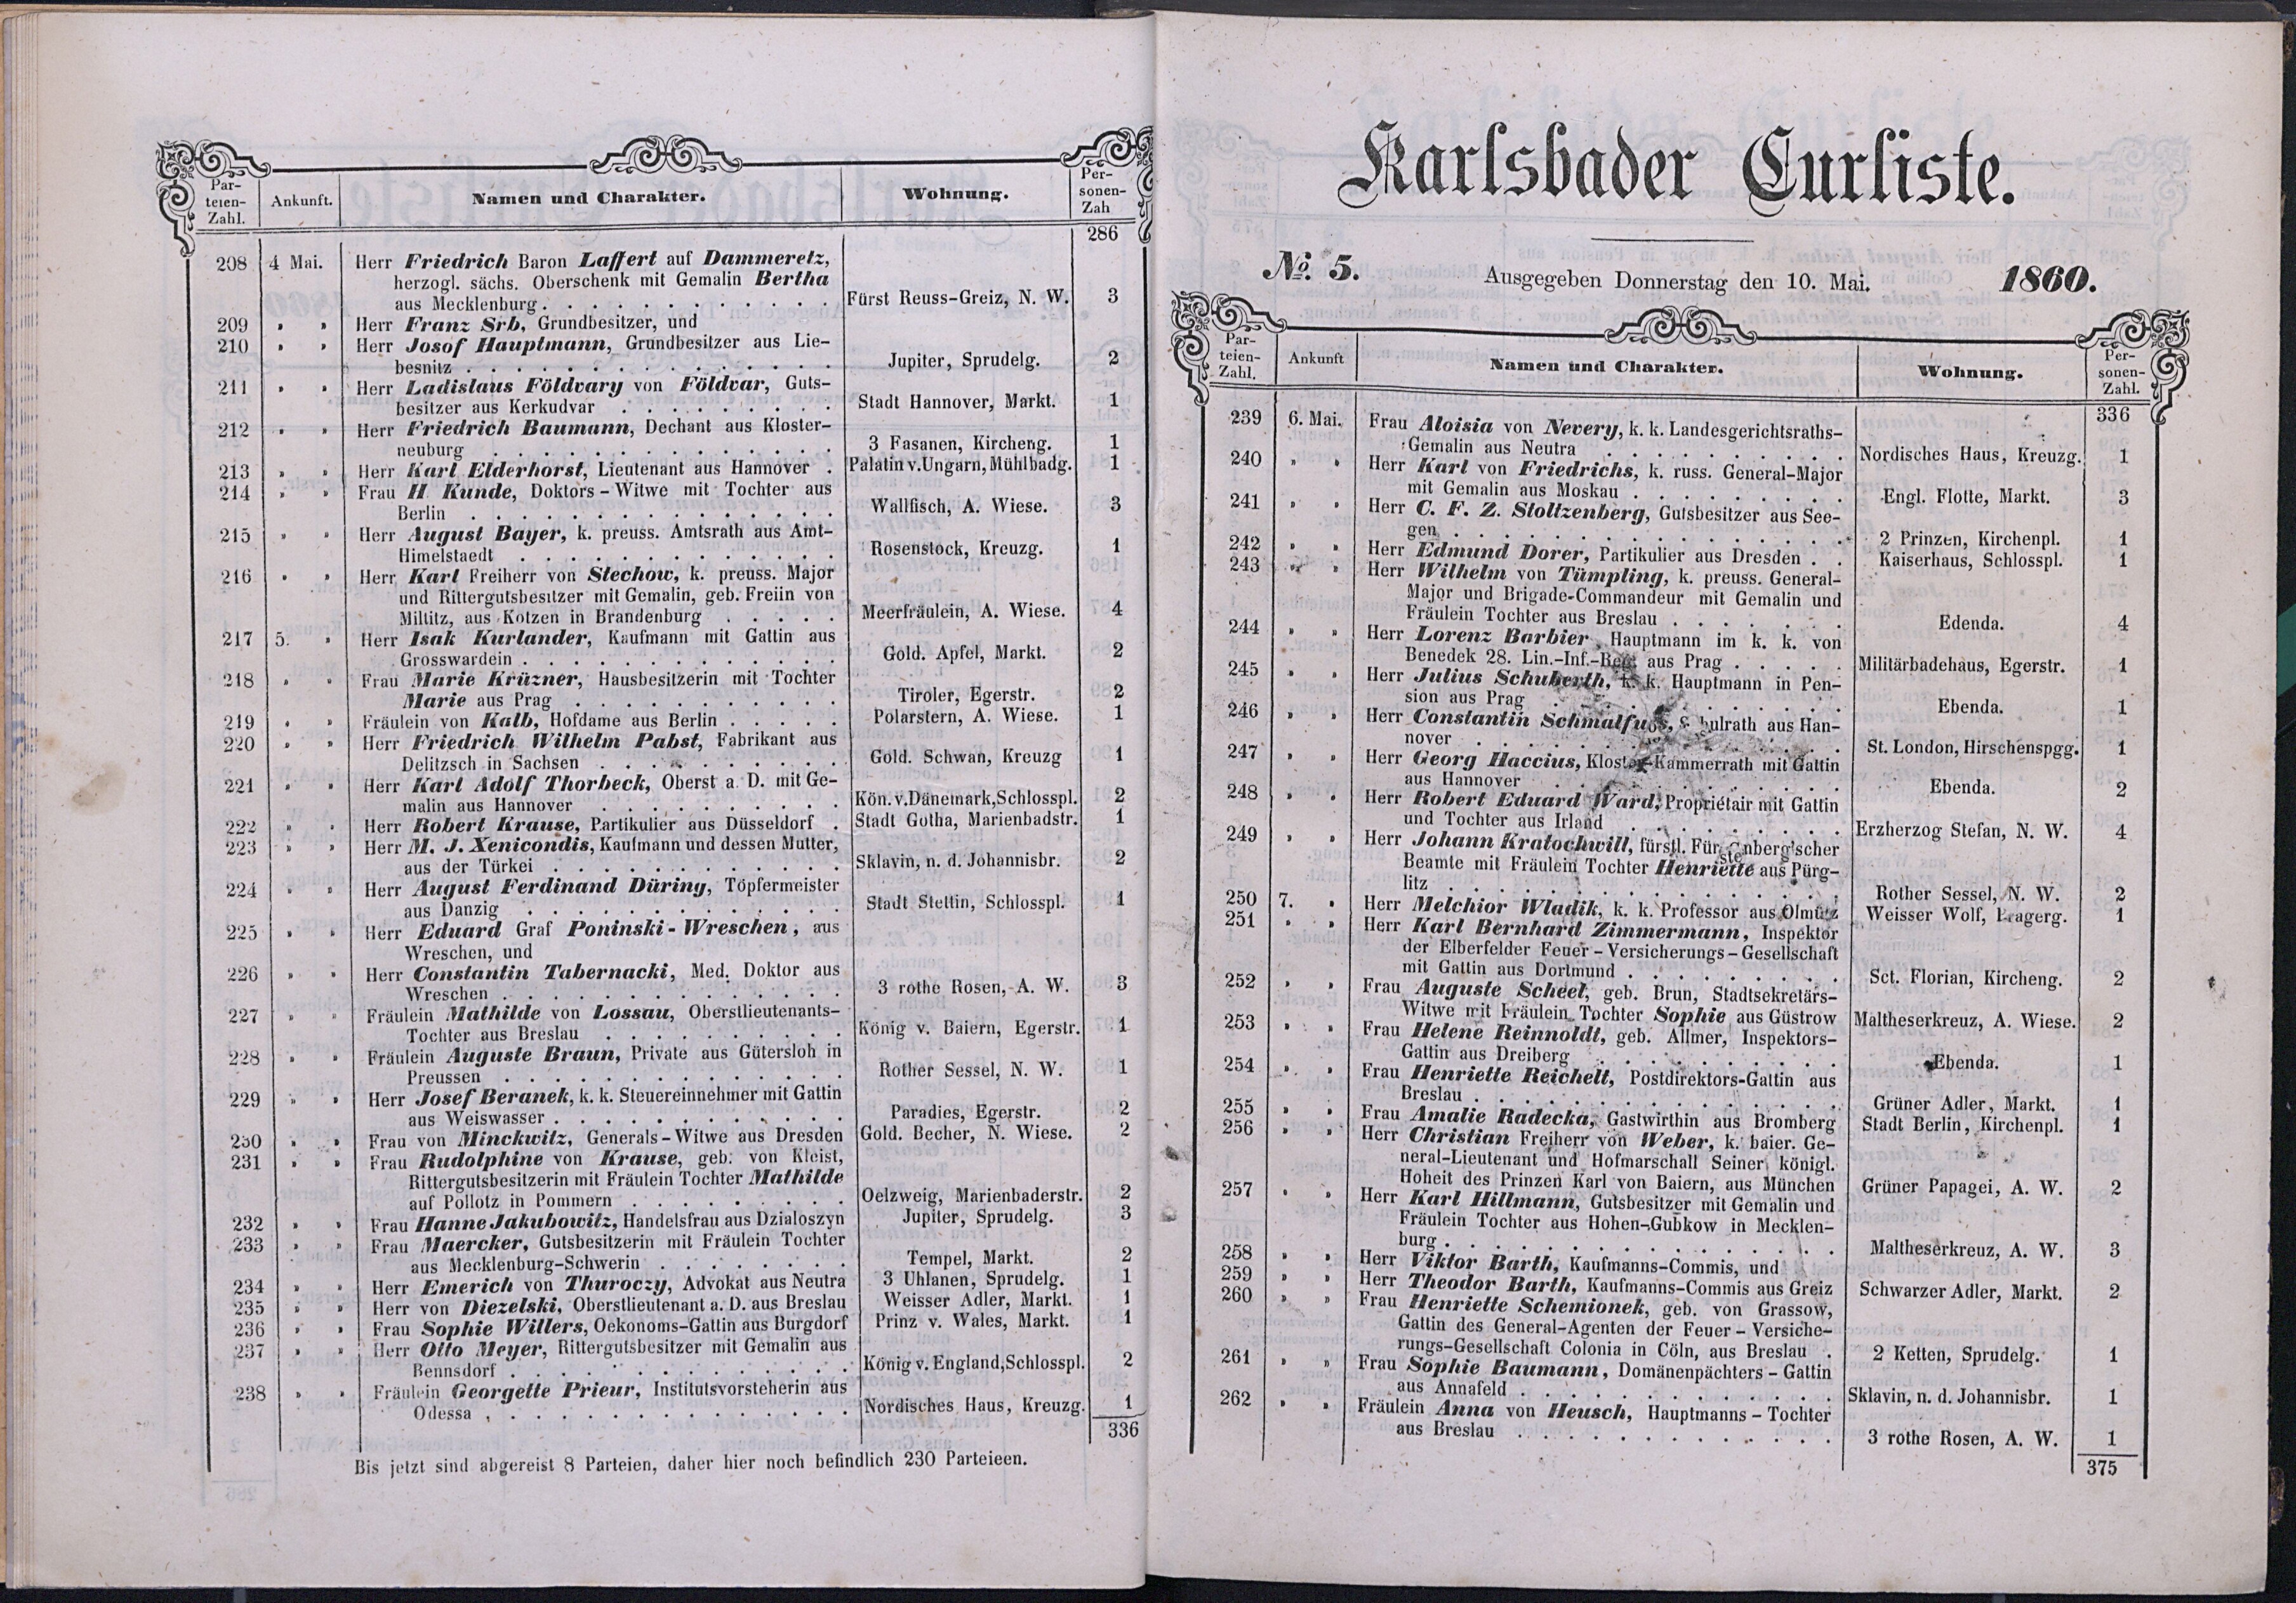 Par-
teien-
Zahl.
Ankunft.
Namen und Charakter.
Wohnung.
Per-
sonen-
Zah
286
208 4 Mai. Herr Friedrich Baron Laffert auf Dammeretz,
herzogl. sächs. Oberschenk mit Gemalin Bertha
aus Mecklenburg . . . . . . . . . . . . Fürst Reuss-Greiz, N. W. 3
209 „ „ Herr Franz Srb, Grundbesitzer, und
210 „ „ Herr Josof Hauptmann, Grundbesitzer aus Lie-
besnitz . . . . . . . . . . . . . . . Jupiter, Sprudelg. 2
211 „ „ Herr Ladislaus Földvary von Földvar, Guts-
besitzer aus Kerkudvar . . . . . . . . . Stadt Hannover, Markt. 1
212 „ „ Herr Friedrich Baumann, Dechant aus Kloster-
neuburg . . . . . . . . . . . . . . 3 Fasanen, Kircheng. 1
213 „ „ Herr Karl Elderhorst, Lieutenant aus Hannover . Palatin v. Ungarn, Mühlbadg. 1
214 „ „ Frau H Kunde, Doktors-Witwe mit Tochter aus
Berlin . . . . . . . . . . . . . . . Wallfisch, A. Wiese. 3
215 „ „ Herr August Bayer, k. preuss. Amtsrath aus Amt-
Himelstaedt . . . . . . . . . . . . Rosenstock, Kreuzg. 1
216 „ „ Herr Karl Freiherr von Stechow, k. preuss. Major
und Rittergutsbesitzer mit Gemalin, geb. Freiin von
Miltitz, aus Kotzen in Brandenburg . . . . . Meerfräulein, A. Wiese. 4
217 5. „ Herr Isak Kurlander, Kaufmann mit Gattin aus
Grosswardein . . . . . . . . . . . . . Gold. Apfel, Markt. 2
218 „ „ Frau Marie Krüzner, Hausbesitzerin mit Tochter
Marie aus Prag . . . . . . . . . . . Tiroler, Egerstr. 2
219 „ „ Fräulein von Kalb, Hofdame aus Berlin . . . . . Polarstern, A. Wiese. 1
220 „ „ Herr Friedrich Wilhelm Pabst, Fabrikant aus
Delitzsch in Sachsen . . . . . . . . . . Gold. Schwan, Kreuzg 1
221 „ „ Herr Karl Adolf Thorbeck, Oberst a. D. mit Ge-
malin aus Hannover . . . . . . . . . . Kön. v. Dänemark, Schlosspl. 2
222 „ „ Herr Robert Krause, Partikulier aus Düsseldorf . Stadt Gotha, Marienbadstr. 1
223 „ „ Herr M. J. Xenicondis, Kaufmann und dessen Mutter,
aus der Türkei . . . . . . . . . . . . Sklavin, n. d. Johannisbr. 2
224 „ „ Herr August Ferdinand Düring, Töpfermeister
aus Danzig . . . . . . . . . . . . . Stadt Stettin, Schlosspl. 1
225 „ „ Herr Eduard Graf Poninski-Wreschen, aus
Wreschen, und
226 „ „ Herr Constantin Tabernacki, Med. Doktor aus
Wreschen . . . . . . . . . . . . . . 3 rothe Rosen, A. W. 3
227 „ „ Fräulein Mathilde von Lossau, Oberstlieutenants-
Tochter aus Breslau . . . . . . . . . . König v. Baiern, Egerstr. 1
228 „ „ Fräulein Auguste Braun, Private aus Gütersloh in
Preussen . . . . . . . . . . . . . . Rother Sessel, N. W. 1
229 „ „ Herr Josef Beranek, k. k. Steuereinnehmer mit Gattin
aus Weiswasser . . . . . . . . . . . . Paradies, Egerstr. 2
230 „ „ Frau von Minckwitz, Generals-Witwe aus Dresden Gold. Becher, N. Wiese. 2
231 „ „ Frau Rudolphine von Krause, geb. von Kleist,
Rittergutsbesitzerin mit Fräulein Tochter Mathilde
auf Pollotz in Pommern . . . . . . . . . Oelzweig, Marienbaderstr. 2
232 „ „ Frau Hanne Jakubowitz, Handelsfrau aus Dzialoszyn Jupiter, Sprudelg. 3
233 „ „ Frau Maercker, Gutsbesitzerin mit Fräulein Tochter
aus Mecklenburg-Schwerin . . . . . . . . Tempel, Markt. 2
234 „ „ Herr Emerich von Thuroczy, Advokat aus Neutra 3 Uhlanen, Sprudelg. 1
235 „ „ Herr von Diezelski, Oberstlieutenant a. D. aus Breslau Weisser Adler, Markt. 1
236 „ „ Frau Sophie Willers, Oekonoms-Gattin aus Burgdorf Prinz v. Wales, Markt. 1
237 „ „ Herr Otto Meyer, Rittergutsbesitzer mit Gemalin aus
Bennsdorf . . . . . . . . . . . . . . König v. England, Schlosspl. 2
238 „ „ Fräulein Georgette Prieur, Institutsvorsteherin aus
Odessa . . . . . . . . . . . . . . . Nordisches Haus, Kreuzg. 1
336
Bis jetzt sind abgereist 8 Parteien, daher hier noch befindlich 230 Parteieen.
Karlsbader Curliste.
No. 5. Ausgegeben Donnerstag den 10. Mai. 1860.
Par-
teien-
Zahl.
Ankunft
Namen und Charakter.
Wohnung.
Per-
sonen-
Zahl.
336
239 6. Mai. Frau Aloisia von Nevery, k. k. Landesgerichtsraths-
Gemalin aus Neutra . . . . . . . . . . Nordisches Haus, Kreuzg. 1
240 „ „ Herr Karl von Friedrichs, k. russ. General-Major
mit Gemalin aus Moskau . . . . . . . . . Engl. Flotte, Markt. 3
241 „ „ Herr C. F. Z. Stoltzenberg, Gutsbesitzer aus See-
gen . . . . . . . . . . . . . . . . 2 Prinzen, Kirchenpl. 1
242 „ „ Herr Edmund Dorer, Partikulier aus Dresden . . Kaiserhaus, Schlosspl. 1
243 „ „ Herr Wilhelm von Tümpling, k. preuss. General-
Major und Brigade-Commandeur mit Gemalin und
Fräulein Tochter aus Breslau . . . . . . . Edenda. 4
244 „ „ Herr Lorenz Barbier, Hauptmann im k. k. von
Benedek 28. Lin.-Inf.-Reg. aus Prag . . . . . Militärbadehaus, Egerstr. 1
245 „ „ Herr Julius Schuberth, k. k. Hauptmann in Pen-
sion aus Prag . . . . . . . . . . . . Ebenda. 1
246 „ „ Herr Constantin Schmalfuss, Schulrath aus Han-
nover . . . . . . . . . . . . . . . St. London, Hirschenspgg. 1
247 „ „ Herr Georg Haccius, Kloster-Kammerrath mit Gattin
aus Hannover . . . . . . . . . . . . Ebenda. 2
248 „ „ Herr Robert Eduard Ward, Propriétair mit Gattin
und Tochter aus Irland . . . . . . . . . Erzherzog Stefan, N. W. 4
249 „ „ Herr Johann Kratochwill, fürstl. Fürstenberg'scher
Beamte mit Fräulein Tochter Henriette aus Pürg-
litz . . . . . . . . . . . . . . . . Rother Sessel, N. W. 2
250 7. „ Herr Melchior Wladik, k. k. Professor aus Olmütz Weisser Wolf, Pragerg. 1
251 „ „ Herr Karl Bernhard Zimmermann, Inspektor
der Elberfelder Feuer-Versicherungs-Gesellschaft
mit Gattin aus Dortmund . . . . . . . . . Sct. Florian, Kircheng. 2
252 „ „ Frau Auguste Scheel, geb. Brun, Stadtsekretärs-
Witwe mit Fräulein Tochter Sophie aus Güstrow Maltheserkreuz, A. Wiese. 2
253 „ „ Frau Helene Reinnoldt, geb. Allmer, Inspektors-
Gattin aus Dreiberg . . . . . . . . . . Ebenda. 1
254 „ „ Frau Henriette Reichelt, Postdirektors-Gattin aus
Breslau . . . . . . . . . . . . . . . Grüner Adler, Markt. 1
255 „ „ Frau Amalie Radecka, Gastwirthin aus Bromberg Stadt Berlin, Kirchenpl. 1
256 „ „ Herr Christian Freiherr von Weber, k. baier. Ge-
neral-Lieutenant und Hofmarschall Seiner königl.
Hoheit des Prinzen Karl von Baiern, aus München Grüner Papagei, A. W. 2
257 „ „ Herr Karl Hillmann, Gutsbesitzer mit Gemalin und
Fräulein Tochter aus Hohen-Gubkow in Mecklen-
burg . . . . . . . . . . . . . . . . Maltheserkreuz, A. W. 3
258 „ „ Herr Viktor Barth, Kaufmanns-Commis, und
259 „ „ Herr Theodor Barth, Kaufmanns-Commis aus Greiz Schwarzer Adler, Markt. 2
260 „ „ Frau Henriette Schemionek, geb. von Grassow,
Gattin des General-Agenten der Feuer-Versiche-
rungs-Gesellschaft Colonia in Cöln, aus Breslau . 2 Ketten, Sprudelg. 1
261 „ „ Frau Sophie Baumann, Domänenpächters-Gattin
aus Annafeld . . . . . . . . . . . . . Sklavin, n. d. Johannisbr. 1
262 „ „ Fräulein Anna von Heusch, Hauptmanns-Tochter
aus Breslau . . . . . . . . . . . . . 3 rothe Rosen, A. W. 1
375